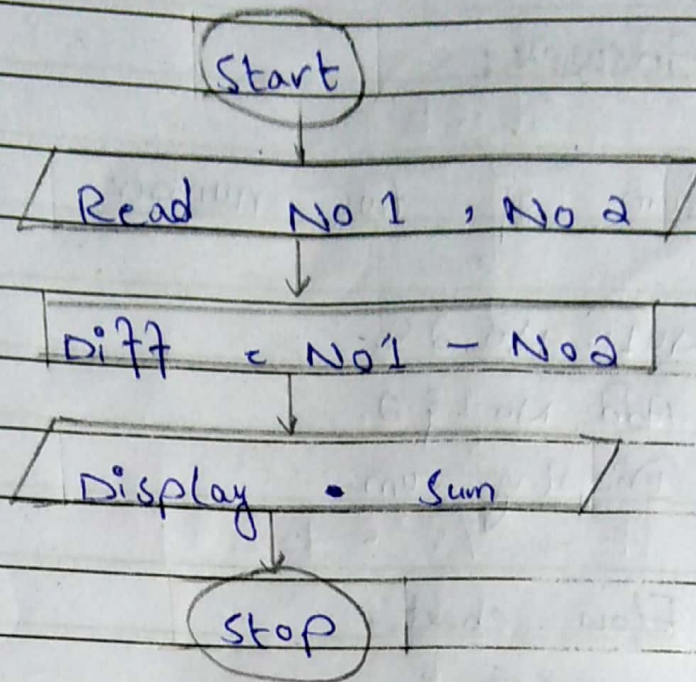 Start
Read No 1 , No 2
Diff = No1 - No2
Display . Sum
Stop